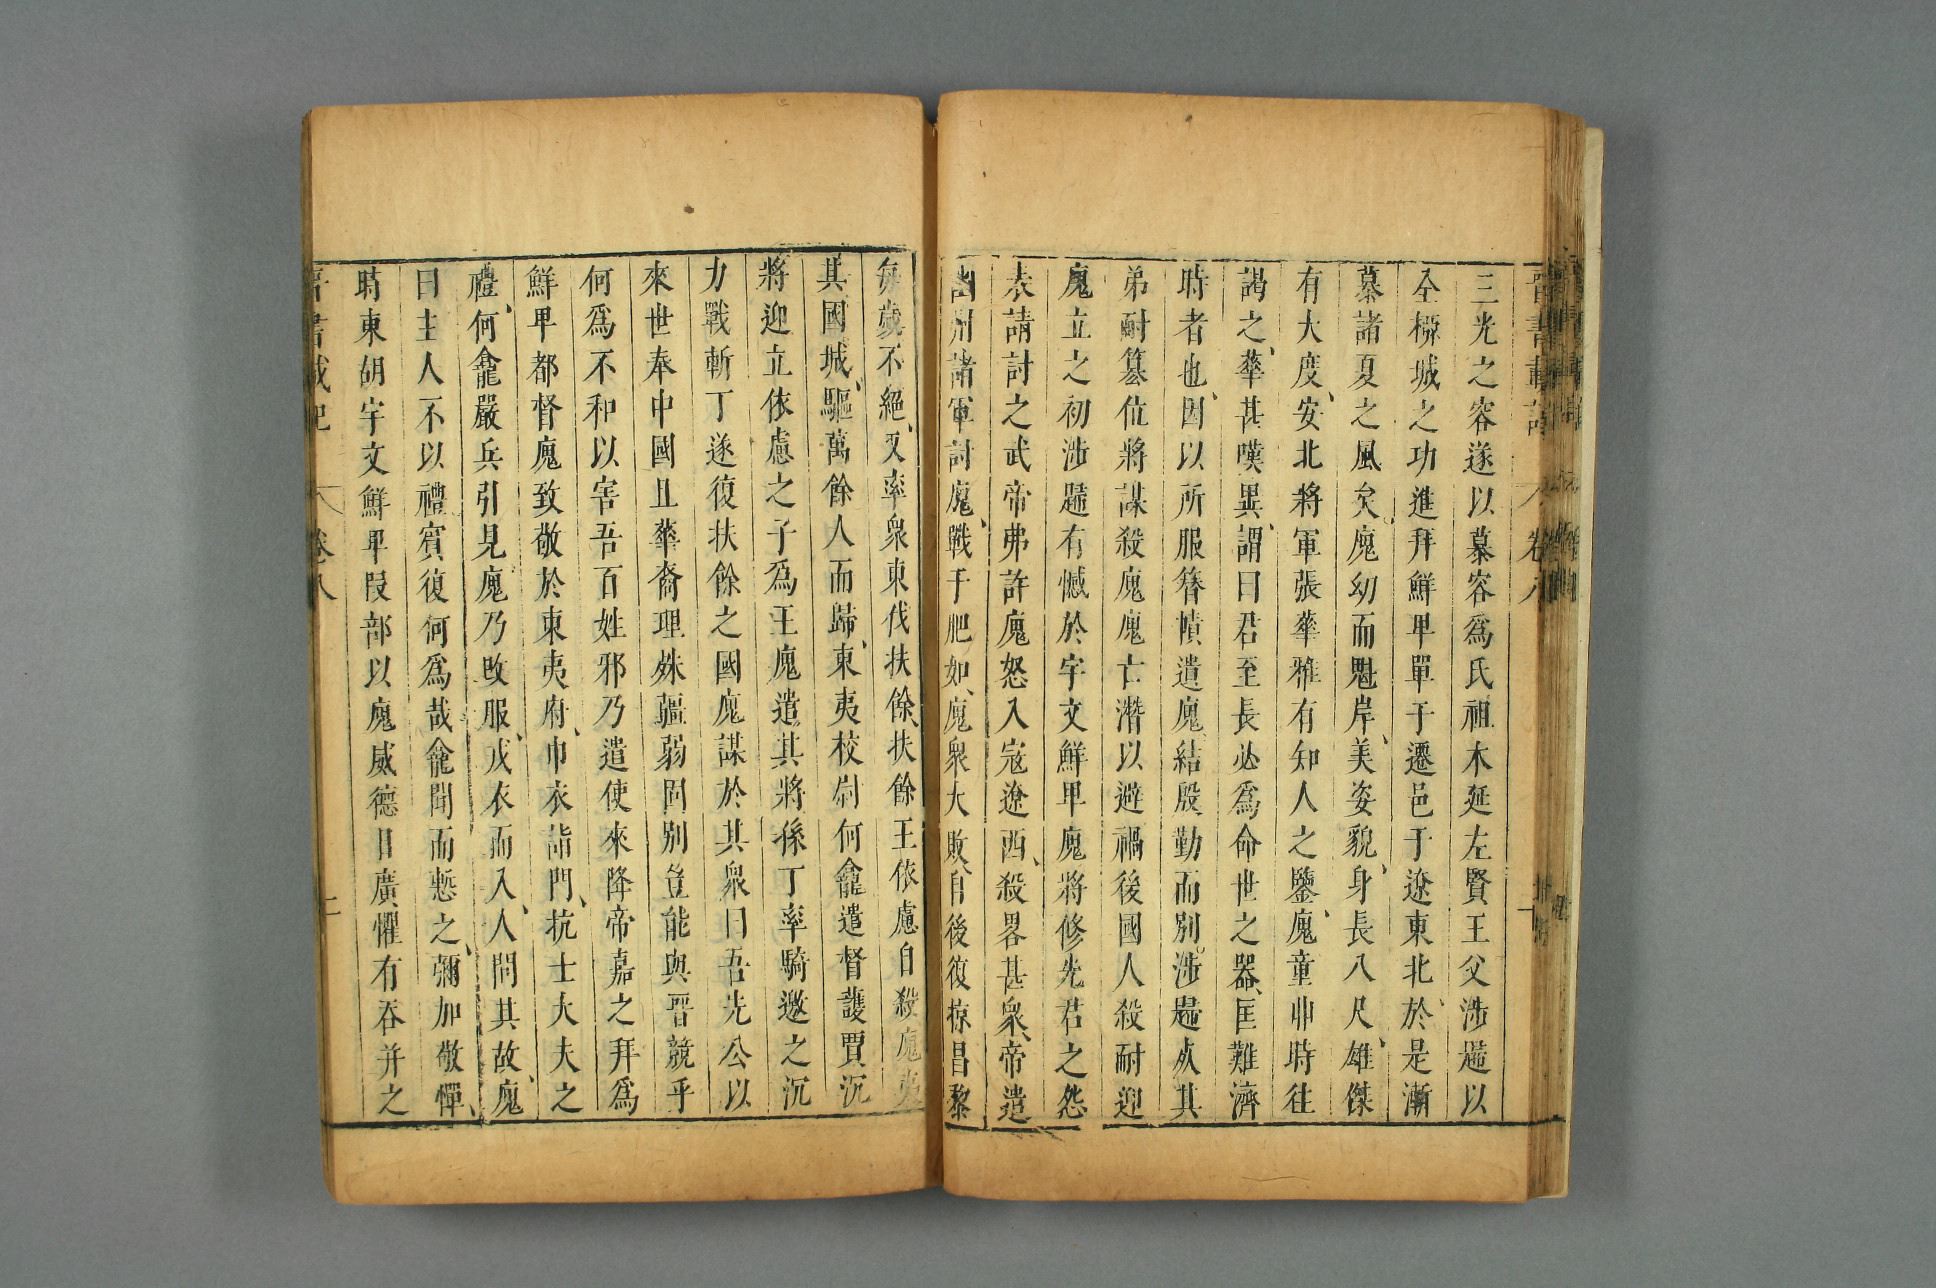 晉書載記 卷八
三光之容遂以慕容爲氏祖木延左賢王父涉歸以
全栁城之功進拜鮮卑單于遷邑于遼東北於是漸
慕諸夏之風矣廆幼而魁岸美姿貌身長八尺雄傑
有大度安北將軍張華雅有知人之鑒廆童丱時往
謁之華甚嘆異謂曰君至長必爲命世之器匡難濟
時者也因以所服簪幘遺廆結殷勤而別涉歸死其
弟耐篡位將謀殺廆廆亡潛以避禍後國人殺耐迎
廆立之初涉歸有憾於宇文鮮卑廆將修先君之怨
表請討之武帝弗許廆怒入寇遼西殺畧甚衆帝遣
幽州諸軍討廆戰于肥如廆衆大敗自後復掠昌黎
每歲不絕又率衆東伐扶餘扶餘王依慮自殺廆夷
其國城驅萬餘人而歸東夷校尉何龕遣督護賈沉
將迎立依慮之子爲王廆遣其將孫丁率騎邀之沉
力戰斬丁遂復扶餘之國廆謀於其衆曰吾先公以
來世奉中國且華裔理殊疆弱固別豈能與晉競乎
何爲不和以害吾百姓邪乃遣使來降帝嘉之拜爲
鮮卑都督廆致敬於東夷府巾衣詣門抗士大夫之
禮何龕嚴兵引見廆乃改服戎衣而入人問其故廆
曰主人不以禮賓復何爲哉龕聞而慙之彌加敬憚
時東胡宇文鮮卑段部以廆威德日廣懼有吞并之
晉書載記 卷八